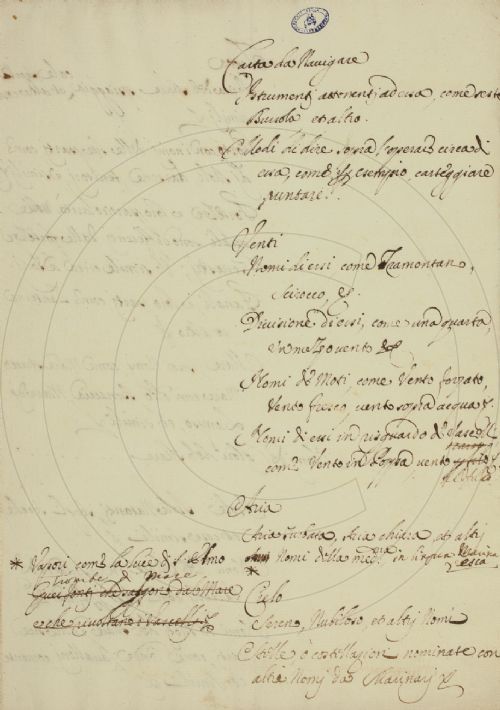 Carta da Navigare
Istrumenti attenenti ad essa, come sesto
Bussola et altro.
Modi di dire sopra l'operare circa di
essa, come per esempio, carteggiare
puntare.
Venti
Nomi di essi come Tramontano,
Scirocco, &.
Divisione di essi, come una quarta,
Un mezzo vento &
Nomi de Moti come Vento forzato,
Vento fresco, vento sopra acqua &.
Nomi di essi in risguardo de Vascelli
come Vento in Poppa vento
Aria
Aria turbata, Aria chiara et altri
Nomi della med.ma in lingua Marina
resca
* Vapori come la luce di S. Elmo
Trombe di Mare
che sorgono dal Mare
Cielo
Sereno, Nubiloso, et altri Nomi
Stelle ò costellazioni nominate con
altri Nomi da Marinari